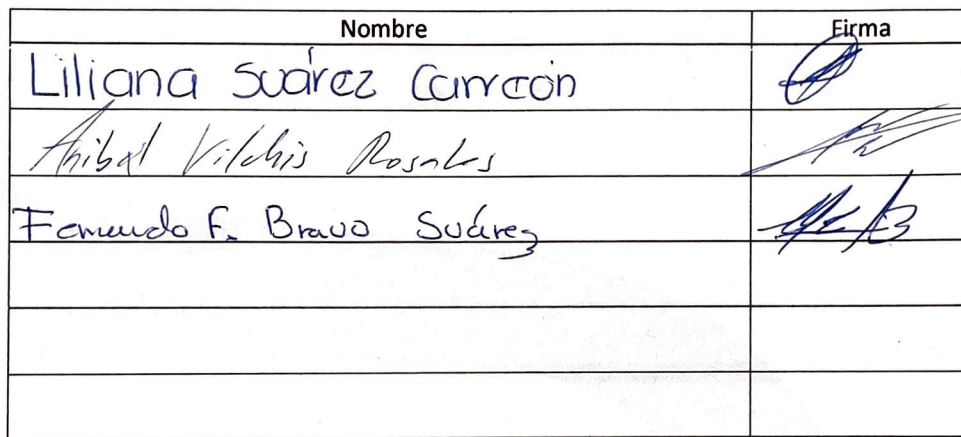 Nombre Firma
Liliana Suárez Carreón
Anibal Vilchis Rosales
Fernando F. Bravo Suárez